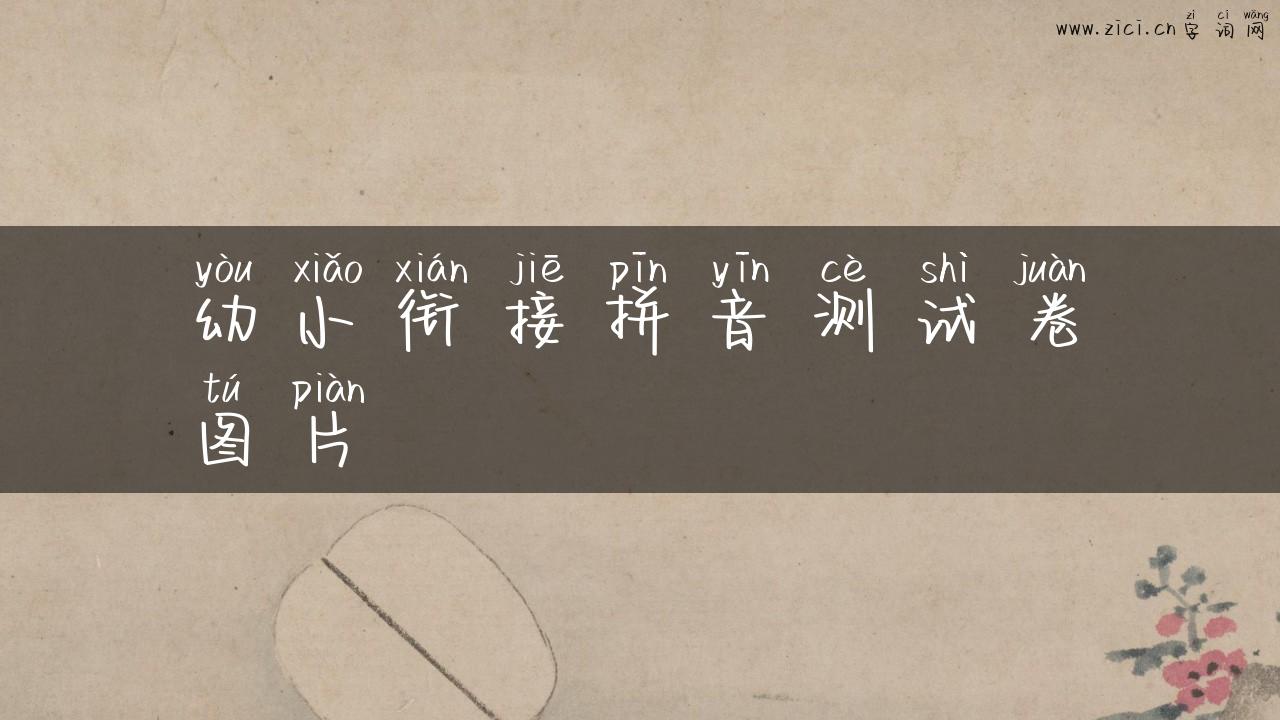 zì cí wǎng
www.zici.cn 字词网
yòu xiǎo xián jiē pīn yīn cè shì juàn
幼小衔接拼音测试卷
tú piàn
图片